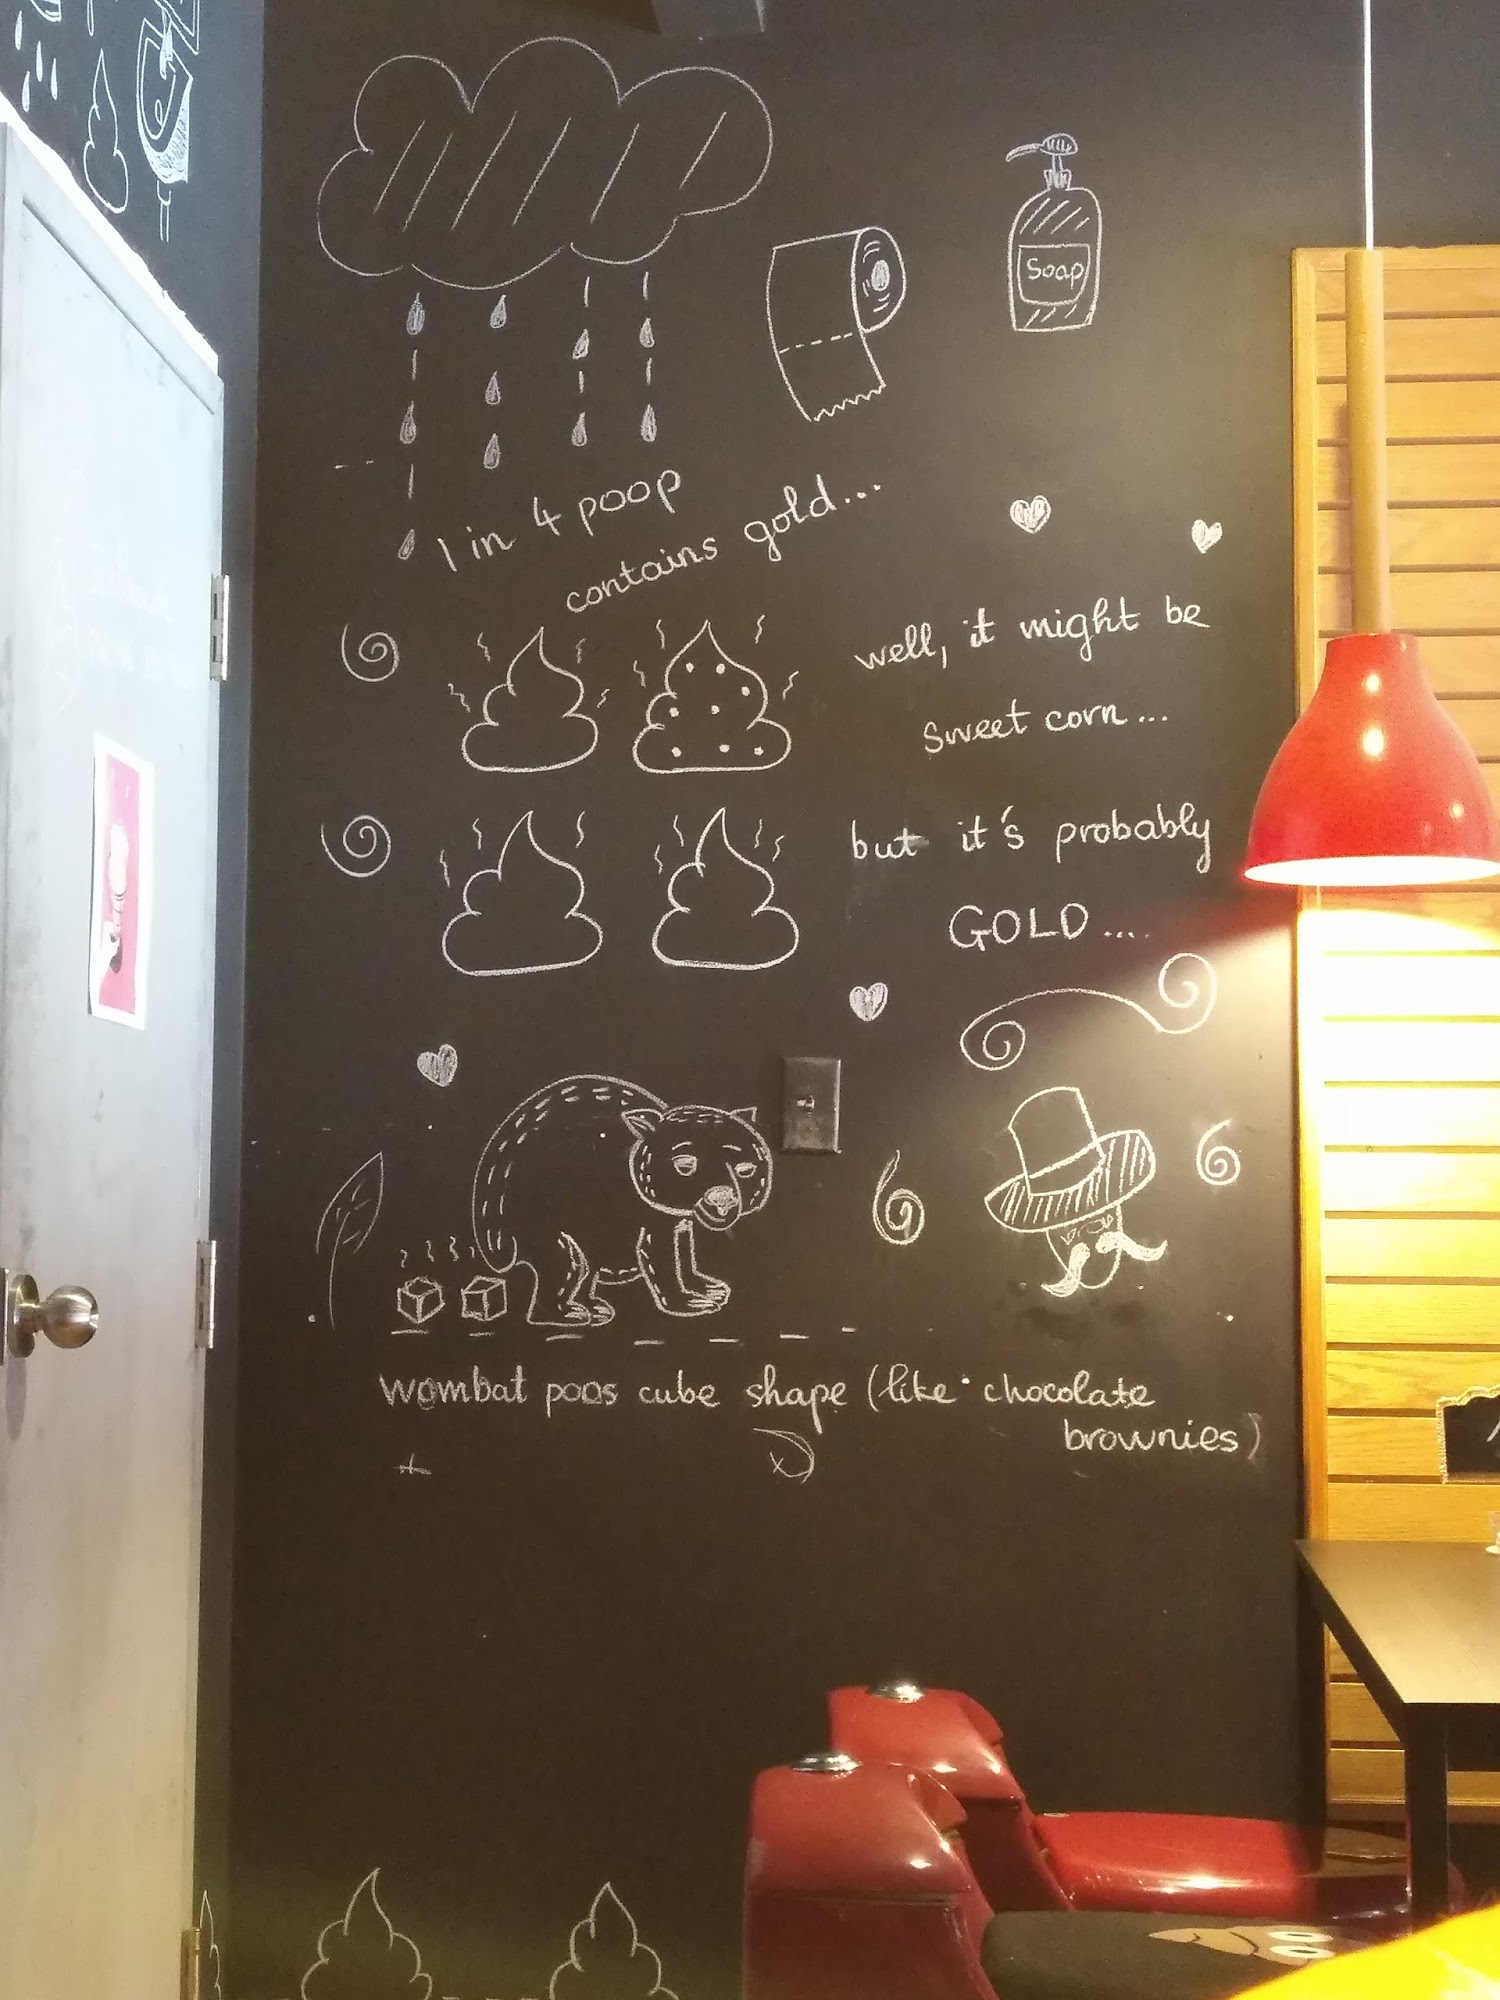 Soap
1 in 4 poop
contains gold...
well, it might be
sweet corn...
but it's probably
GOLD....
wombat poos cube shape (like chocolate
brownies)